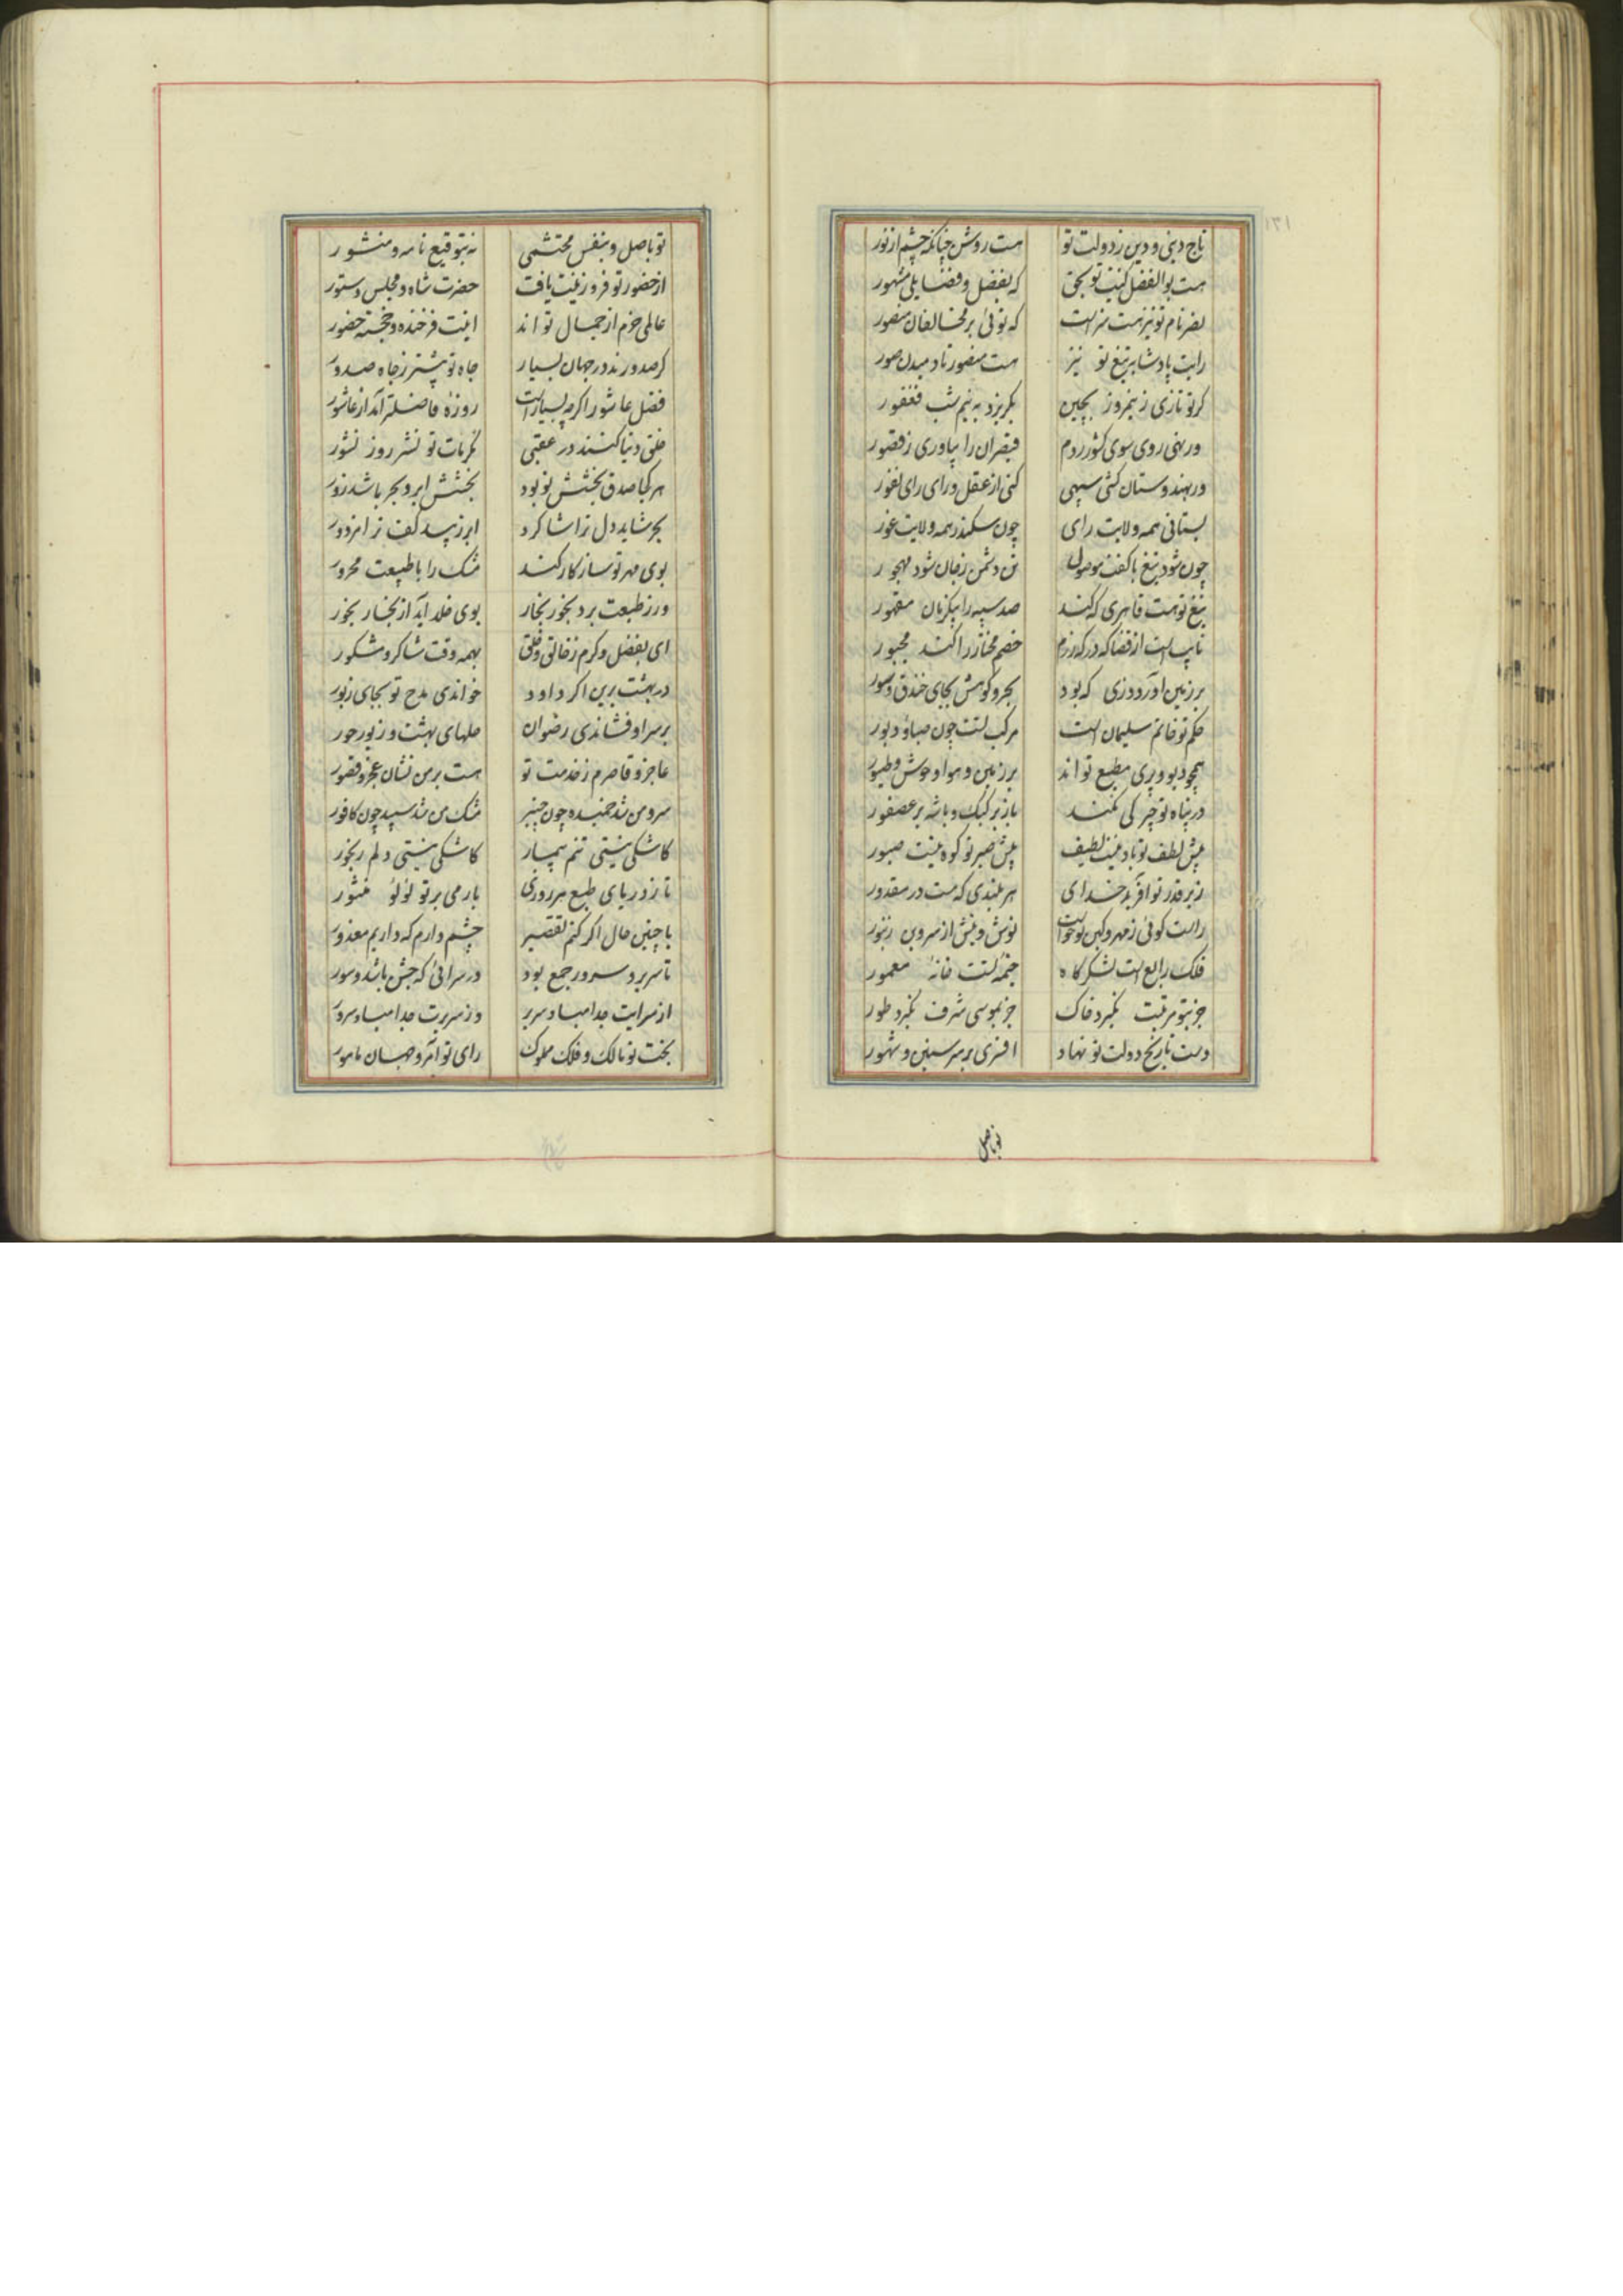 ۱۳۱
تاج دینی و دین ز دولت تو هست روشن چنانکه چشم از نور
هست بوالفضل کنیت تو بحق که بفضل و فضایلی مشهور
نصر نام تو نیز هست سزاست که توئی بر مخالفان منصور
رایت پادشا بتیغ تو نیز هست منصور تا دمیدن صور
گر تو تازی ز نیمروز بچین بگریزد به نیم شب فغفور
ور نهی روی سوی کشور روم قیصران را بیاوری ز قصور
ور بهندوستان کشی سپهی کنی از عقل و رای رای نفور
بستانی همه ولایت رای چون سکندر همه ولایت غور
چون شود تیغ با کفت موصول تن دشمن ز جان شود مهجور
تیغ تو هست قاهری که کند صد سپه را بیکزمان مقهور
نایب است از قضا که در که رزم خصم مختار را کند مجبور
بر زمین آورد دزی که بود بحر و کوهش بجای خندق و سور
حکم تو خاتم سلیمان است مرکب تست چون صبا و دبور
همچو دیو و پری مطیع تو اند بر زمین و هوا وحوش و طیور
در پناه تو چیرگی نکند باز بر کبک و باشه بر عصفور
پیش لطف تو باد نیست لطیف پیش صبر تو کوه نیست صبور
زیر قدر تو آفرید خدای هر بلندی که هست در مقدور
راست گوئی ز مهر و کین تو خواست نوش و نیش از سر و بن زنبور
فلک رابع است لشکرگاه خیمهٔ تست خانهٔ معمور
جز بتو مرتبت نگیرد خاک جز بموسی شرف نگیرد طور
دست تاریخ دولت تو نهاد افسری بر سر سنین و شهور
تو باصل
تو باصل و بنفس محتشمی نه بتوقیع نامه و منشور
از حضور تو فر و زینت یافت حضرت شاه و مجلس دستور
عالمی خرم از جمال تو اند اینت فرخنده و خجسته حضور
گر صدورند در جهان بسیار جاه تو بیشتر ز جاه صدور
فضل عاشورا گرچه بسیار است روزهٔ فاضلتر آمد از عاشور
خلق دنیا کنند در عقبی مکرمات تو نشر روز نشور
هر کجا صدق بخشش تو بود بخشش ابر و بحر باشد زور
بحر شاید دل ترا شاگرد ابر زیبد کف ترا مزدور
بوی مهر تو سازگار کند مشک را با طبیعت محرور
ور ز طبعت برد بخور بخار بوی خلد آید از بخار بخور
ای بفضل و کرم ز خالق و خلق بهمه وقت شاکر و مشکور
در بهشت برین اگر داود خواندی مدح تو بجای زبور
بر سر او فشاندی رضوان حلهای بهشت و زیور حور
عاجز و قاصرم ز خدمت تو هست بر من نشان عجز و قصور
سرو من شد خمیده چون چنبر مشک من شد سپید چون کافور
کاشکی نیستی تنم بیمار کاشکی نیستی دلم رنجور
تا ز دریای طبع هر روزی بارمی بر تو لؤلؤ منثور
با چنین حال اگر کنم تقصیر چشم دارم که داریم معذور
تا سریر و سرور جمع بود در سرائی که جشن باشد و سور
از سرایت جدا مباد سریر وز سریرت جدا مباد سرور
بخت تو مالک و فلک مملوک رای تو آمر و جهان مامور